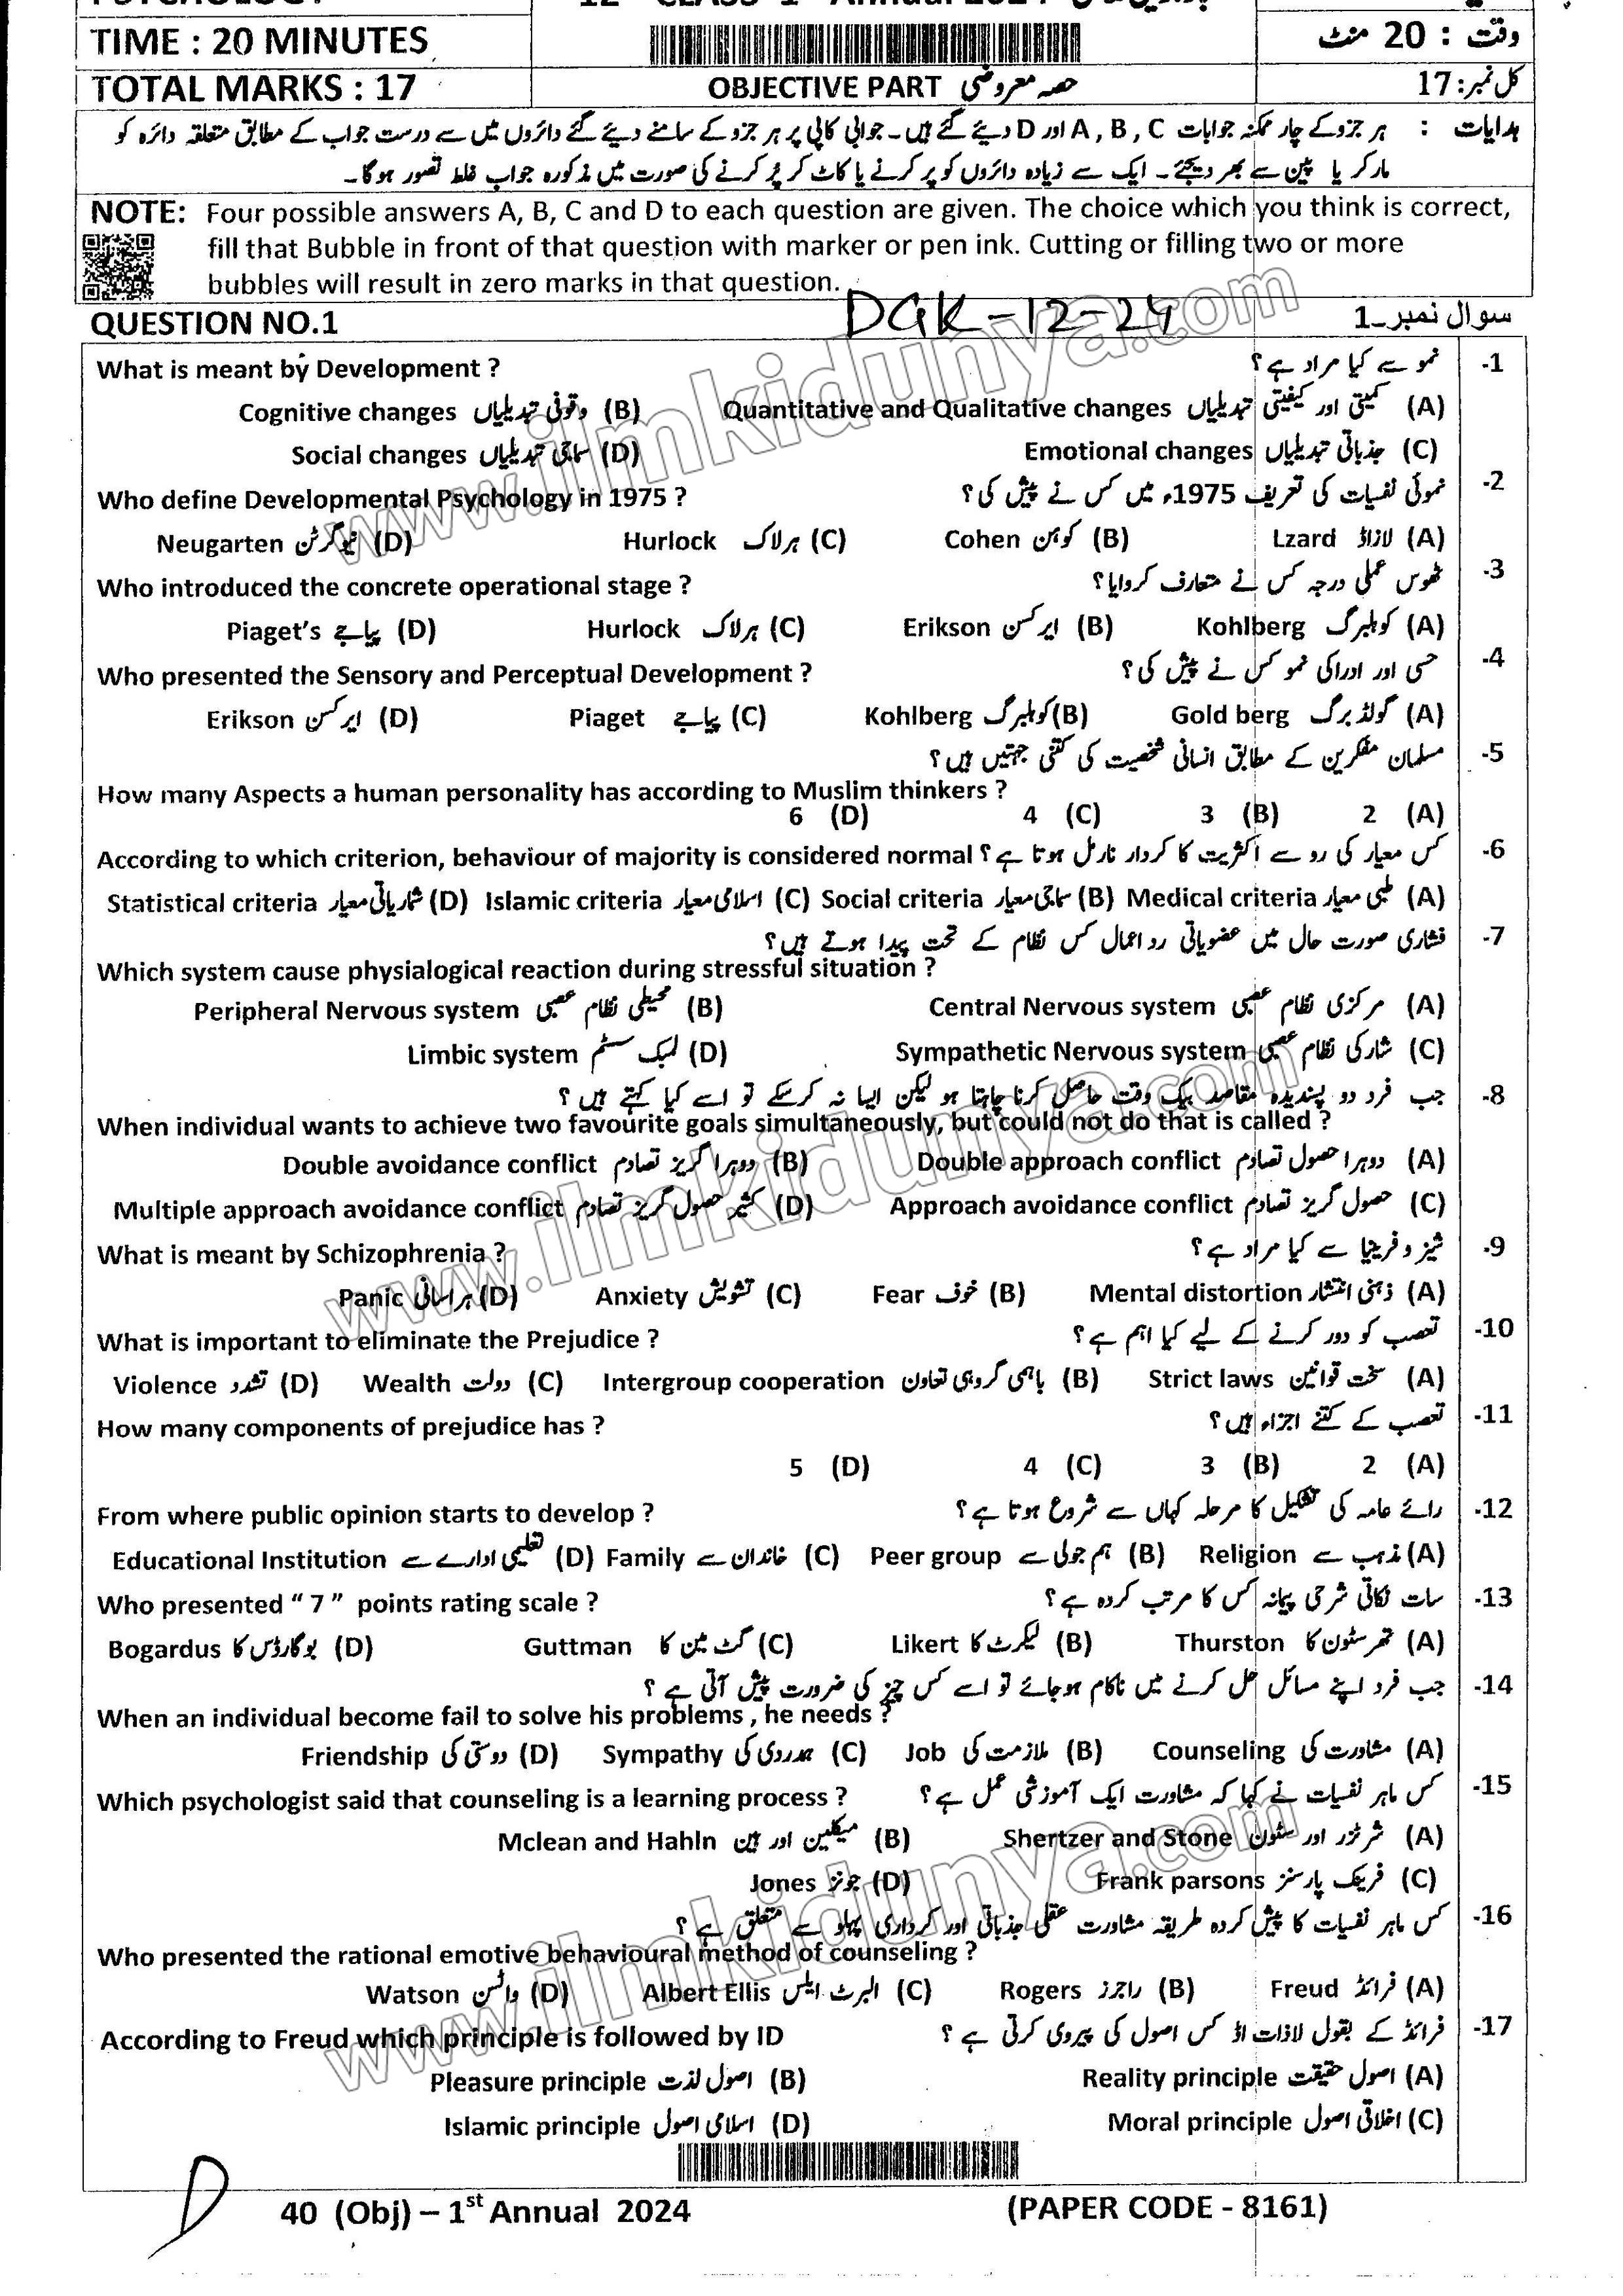 PSYCHOLOGY
TIME : 20 MINUTES
وقت : 20 منٹ
TOTAL MARKS : 17
OBJECTIVE PART حصہ معروضی
کل نمبر: 17
ہدایات : ہر جزو کے چار ممکنہ جوابات A , B , C اور D دیئے گئے ہیں۔ جوابی کاپی پر ہر جزو کے سامنے دیئے گئے دائروں میں سے درست جواب کے مطابق متعلقہ دائرہ کو
مارکر یا پین سے بھر دیجئے۔ ایک سے زیادہ دائروں کو پر کرنے یا کاٹ کر پُر کرنے کی صورت میں مذکورہ جواب غلط تصور ہوگا۔
NOTE: Four possible answers A, B, C and D to each question are given. The choice which you think is correct,
fill that Bubble in front of that question with marker or pen ink. Cutting or filling two or more
bubbles will result in zero marks in that question.
DGK-12-24
QUESTION NO.1 سوال نمبر ۔1
What is meant by Development ? نمو سے کیا مراد ہے؟ -1
Cognitive changes وقوفی تبدیلیاں (B) Quantitative and Qualitative changes کمیتی اور کیفیتی تبدیلیاں (A)
Social changes سماجی تبدیلیاں (D) Emotional changes جذباتی تبدیلیاں (C)
Who define Developmental Psychology in 1975 ? نموئی نفسیات کی تعریف 1975ء میں کس نے پیش کی؟ -2
Neugarten نیوگرٹن (D) Hurlock ہرلاک (C) Cohen کوہن (B) Lzard لازاڈ (A)
Who introduced the concrete operational stage ? ٹھوس عملی درجہ کس نے متعارف کروایا؟ -3
Piaget's پیاجے (D) Hurlock ہرلاک (C) Erikson ایرکسن (B) Kohlberg کوہلبرگ (A)
Who presented the Sensory and Perceptual Development ? حسی اور ادراکی نمو کس نے پیش کی؟ -4
Erikson ایرکسن (D) Piaget پیاجے (C) Kohlberg کوہلبرگ (B) Gold berg گولڈ برگ (A)
مسلمان مفکرین کے مطابق انسانی شخصیت کی کتنی جہتیں ہیں؟ -5
How many Aspects a human personality has according to Muslim thinkers ?
6 (D) 4 (C) 3 (B) 2 (A)
According to which criterion, behaviour of majority is considered normal کس معیار کی رو سے اکثریت کا کردار نارمل ہوتا ہے؟ -6
Statistical criteria شماریاتی معیار (D) Islamic criteria اسلامی معیار (C) Social criteria سماجی معیار (B) Medical criteria طبی معیار (A)
فشاری صورت حال میں عضویاتی رد اعمال کس نظام کے تحت پیدا ہوتے ہیں؟ -7
Which system cause physialogical reaction during stressful situation ?
Peripheral Nervous system محیطی نظام عصبی (B) Central Nervous system مرکزی نظام عصبی (A)
Limbic system لمبک سسٹم (D) Sympathetic Nervous system شارکی نظام عصبی (C)
جب فرد دو پسندیدہ مقاصد بیک وقت حاصل کرنا چاہتا ہو لیکن ایسا نہ کرسکے تو اسے کیا کہتے ہیں ؟ -8
When individual wants to achieve two favourite goals simultaneously, but could not do that is called ?
Double avoidance conflict دوہرا گریز تصادم (B) Double approach conflict دوہرا حصول تصادم (A)
Multiple approach avoidance conflict کثیر حصول گریز تصادم (D) Approach avoidance conflict حصول گریز تصادم (C)
What is meant by Schizophrenia ? شیزوفرینیا سے کیا مراد ہے؟ -9
Panic ہراسانی (D) Anxiety تشویش (C) Fear خوف (B) Mental distortion ذہنی انتشار (A)
What is important to eliminate the Prejudice ? تعصب کو دور کرنے کے لیے کیا اہم ہے؟ -10
Violence تشدد (D) Wealth دولت (C) Intergroup cooperation باہمی گروہی تعاون (B) Strict laws سخت قوانین (A)
How many components of prejudice has ? تعصب کے کتنے اجزاء ہیں؟ -11
5 (D) 4 (C) 3 (B) 2 (A)
From where public opinion starts to develop ? رائے عامہ کی تشکیل کا مرحلہ کہاں سے شروع ہوتا ہے؟ -12
Educational Institution تعلیمی ادارے سے (D) Family خاندان سے (C) Peer group ہم جولی سے (B) Religion مذہب سے (A)
Who presented " 7 " points rating scale ? سات نکاتی شرحی پیمانہ کس کا مرتب کردہ ہے؟ -13
Bogardus بوگارڈس کا (D) Guttman گٹ مین کا (C) Likert لیکرٹ کا (B) Thurston تھرسٹون کا (A)
جب فرد اپنے مسائل حل کرنے میں ناکام ہوجائے تو اسے کس چیز کی ضرورت پیش آتی ہے ؟ -14
When an individual become fail to solve his problems , he needs ?
Friendship دوستی کی (D) Sympathy ہمدردی کی (C) Job ملازمت کی (B) Counseling مشاورت کی (A)
Which psychologist said that counseling is a learning process ? کس ماہر نفسیات نے کہا کہ مشاورت ایک آموزشی عمل ہے؟ -15
Mclean and Hahln میکلین اور ہین (B) Shertzer and Stone شرٹزر اور سٹون (A)
Jones جونز (D) Frank parsons فرینک پارسنز (C)
کس ماہر نفسیات کا پیش کردہ طریقہ مشاورت عقلی جذباتی اور کرداری پہلو سے متعلق ہے ؟ -16
Who presented the rational emotive behavioural method of counseling ?
Watson واٹسن (D) Albert Ellis البرٹ ایلس (C) Rogers راجرز (B) Freud فرائڈ (A)
According to Freud which principle is followed by ID فرائڈ کے بقول لاذات اڈ کس اصول کی پیروی کرتی ہے ؟ -17
Pleasure principle اصول لذت (B) Reality principle اصول حقیقت (A)
Islamic principle اسلامی اصول (D) Moral principle اخلاقی اصول (C)
D
40 (Obj) – 1st Annual 2024 (PAPER CODE - 8161)
www.ilmkidunya.com
www.ilmkidunya.com
www.ilmkidunya.com